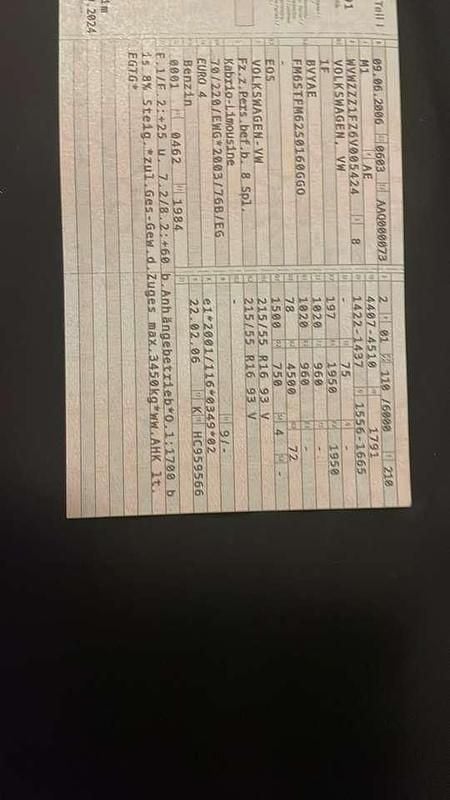 Teil I
09.06.2006 0603 AAQ000073
M1 AE
WVWZZZ1FZ6V005424 8
VOLKSWAGEN, VW
1F
BVYAE
FM6STFM62S0160GGO
-
EOS
VOLKSWAGEN-VW
Fz.z.Pers.bef.b. 8 Spl.
Kabrio-Limousine
70/220/EWG*2003/76B/EG
EURO 4
Benzin
0001 0462 1984
2 01 110 /6000 210
4407-4510 1791
1422-1437 1556-1665
- 75 -
197 1950 1950
1020 960 -
1020 960 -
78 4500 72
1500 750 4 -
215/55 R16 93 V
215/55 R16 93 V
-
9/-
e1*2001/116*0349*02
22.02.06 K HC959566
F.1/F.2:+25 u. 7.2/8.2:+60 b.Anhängebetrieb*O.1:1700 b
is 8% Steig.*zul.Ges-Gew.d.Zuges max.3450kg*ww.AHK lt.
EGTG*
.2024